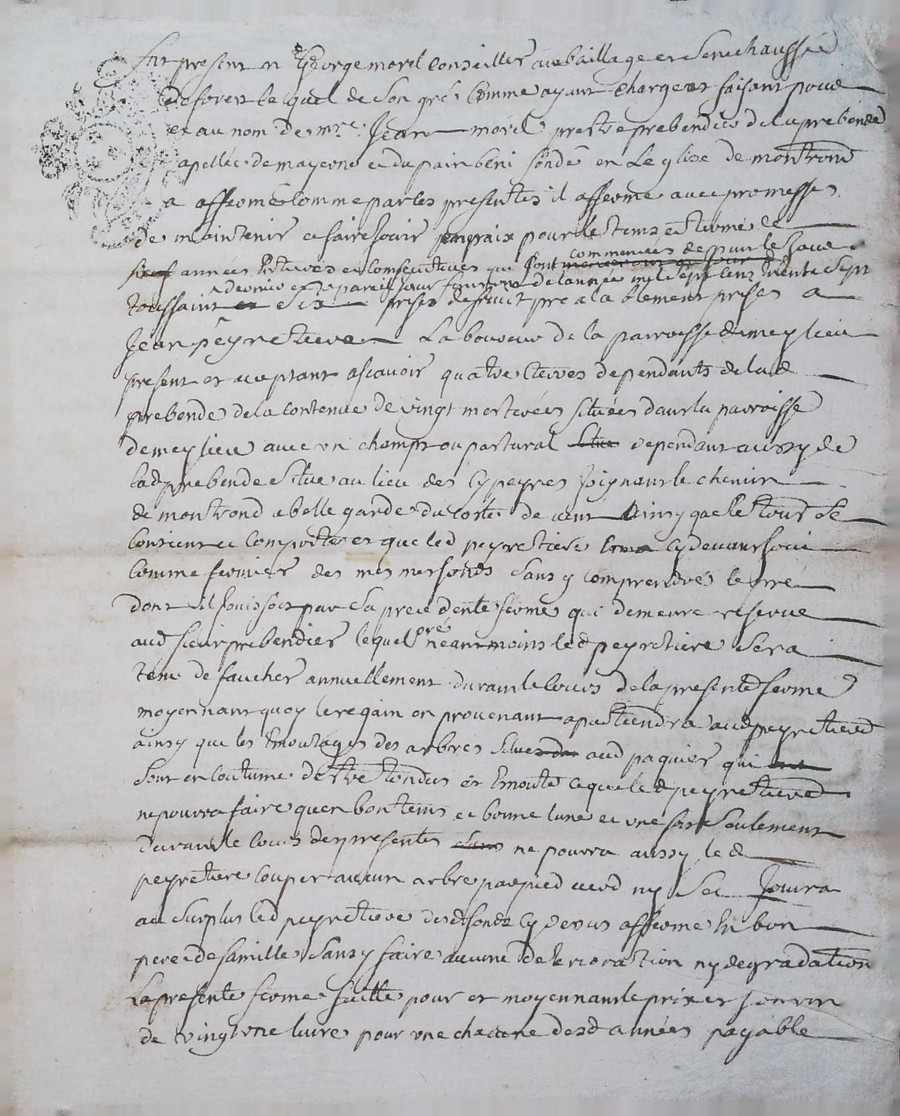 Fut present Mr George morel conseiller au bailliage et senechaussée
de forest lequel de son gré comme ayant charge et faisant pour
et au nom de mre Jean morel prestre prebendier de la prebende
apellée de mayeme et du pain beni fondé en Leglise de montrond
a affermé comme par les presentes il afferme avec promesses
de maintenir et faire jouir pour le tems et terme de
années et consecutives qui sont commencées depuis le jour
toussaint de lannée mil sept cent trente sept
six prises de fruit prealablement prises a
Jean peyretiere Laboureur de la parroisse de meylieu
present et acceptant ascavoir quatre terres dependants de lad
prebende de la contenue de vingt mesterées situées dans la parroisse
de meylieu avec un champt ou pastural dependant aussy de
lad prebende situe au lieu des Joignant le chemin
de montrond a bellegarde du corté de vent ainsy que le tout se
contient et comporte et que led peyretiere cy devant joui
comme fermier des mesmes fonds sans y comprendre le pré
dont il jouissoit par sa precedente ferme qui demeure reservé
aud sieur prebendier lequel pré neantmoins led peyretiere sera
tenu de faucher annuellement durant le cours de la presente ferme
moyennant quoy le regain en provenant apartiendra aud peyretiere
ainsy que les Emoutages des arbres situes aud paquier qui
sont en coutume destre tondus et Emouté ce que led peyretiere
ne pourra faire quen bon tems et bonne lune et une fois seulement
durant le cours des presentes ne pourra aussy led
peyretiere couper aucun arbre par pied verd ny sec Jouira
au surplus led peyretiere desd fonds cy devus affermé En bon
pere de famille sans y faire aucune deterioration ny degradation
La presente ferme faitte pour et moyennant le prix et
de vingt une livre pour une chacune desd années payable